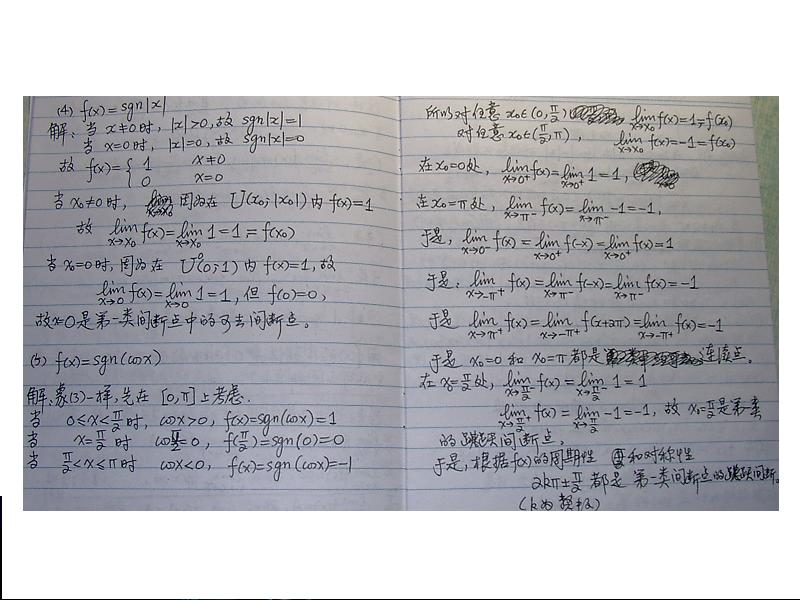 (4) f(x)=sgn|x|
解: 当 x≠0时, |x|>0,故 sgn|x|=1
当 x=0时, |x|=0,故 sgn|x|=0
故 f(x)={ 1 x≠0
0 x=0
当 x₀≠0时, 因为在 U(x₀;|x₀|) 内 f(x)=1
故 lim x→x₀ f(x)=lim x→x₀ 1=1=f(x₀)
当 x₀=0时,因为在 U⁰(0;1) 内 f(x)=1,故
lim x→0 f(x)=lim x→0 1=1,但 f(0)=0,
故x=0是第一类间断点中的可去间断点。
(5) f(x)=sgn(cosx)
解:象(3)一样,先在 [0,π]上考虑.
当 0≤x<π/2时, cosx>0, f(x)=sgn(cosx)=1
当 x=π/2 时 cosπ/2=0, f(π/2)=sgn(0)=0
当 π/2<x≤π时 cosx<0, f(x)=sgn(cosx)=-1
所以对任意 x₀∈(0,π/2) lim x→x₀ f(x)=1=f(x₀)
对任意x₀∈(π/2,π), lim x→x₀ f(x)=-1=f(x₀)
在x₀=0处, lim x→0⁺ f(x)=lim x→0⁺ 1=1,
在x₀=π处, lim x→π⁻ f(x)=lim x→π⁻ -1=-1,
于是, lim x→0⁻ f(x)=lim x→0⁺ f(-x)=lim x→0⁺ f(x)=1
于是, lim x→-π⁺ f(x)=lim x→π⁻ f(-x)=lim x→π⁻ f(x)=-1
于是 lim x→π⁺ f(x)=lim x→-π⁺ f(x+2π)=lim x→-π⁺ f(x)=-1
于是 x₀=0 和 x₀=π 都是 连续点。
在 x₀=π/2处, lim x→π/2⁻ f(x)=lim x→π/2⁻ 1=1
lim x→π/2⁺ f(x)=lim x→π/2⁺ -1=-1, 故 x₀=π/2是第一类
的跳跃间断点,
于是,根据f(x)的周期性 和对称性
2kπ±π/2 都是 第一类间断点的跳跃间断。
(k为整数)